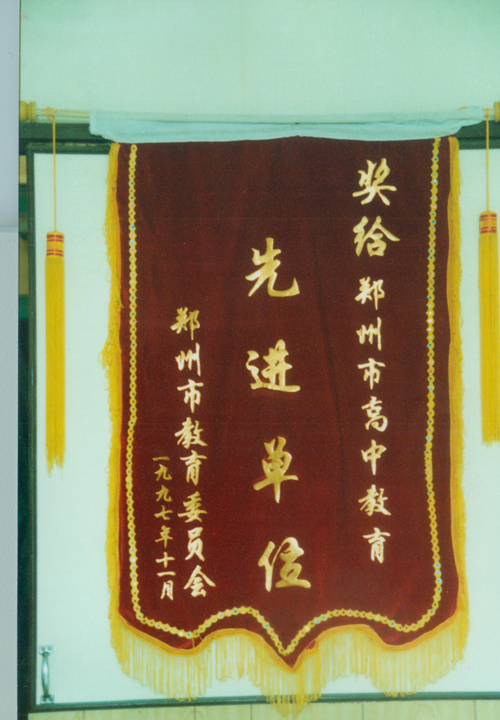 奖给郑州市高中教育
先进单位
郑州市教育委员会
一九九七年十一月